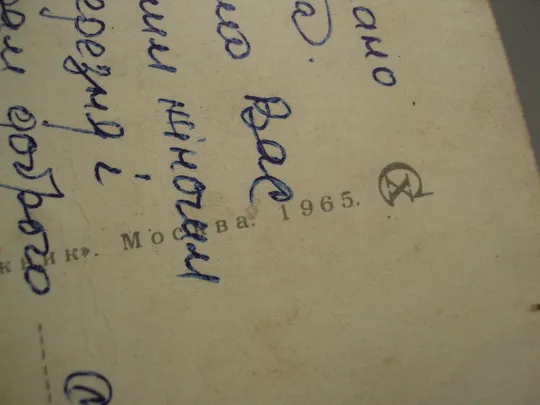 ано
мо Вас
им жіночим
ерезня і
ам доброго
жник». Москва. 1965.